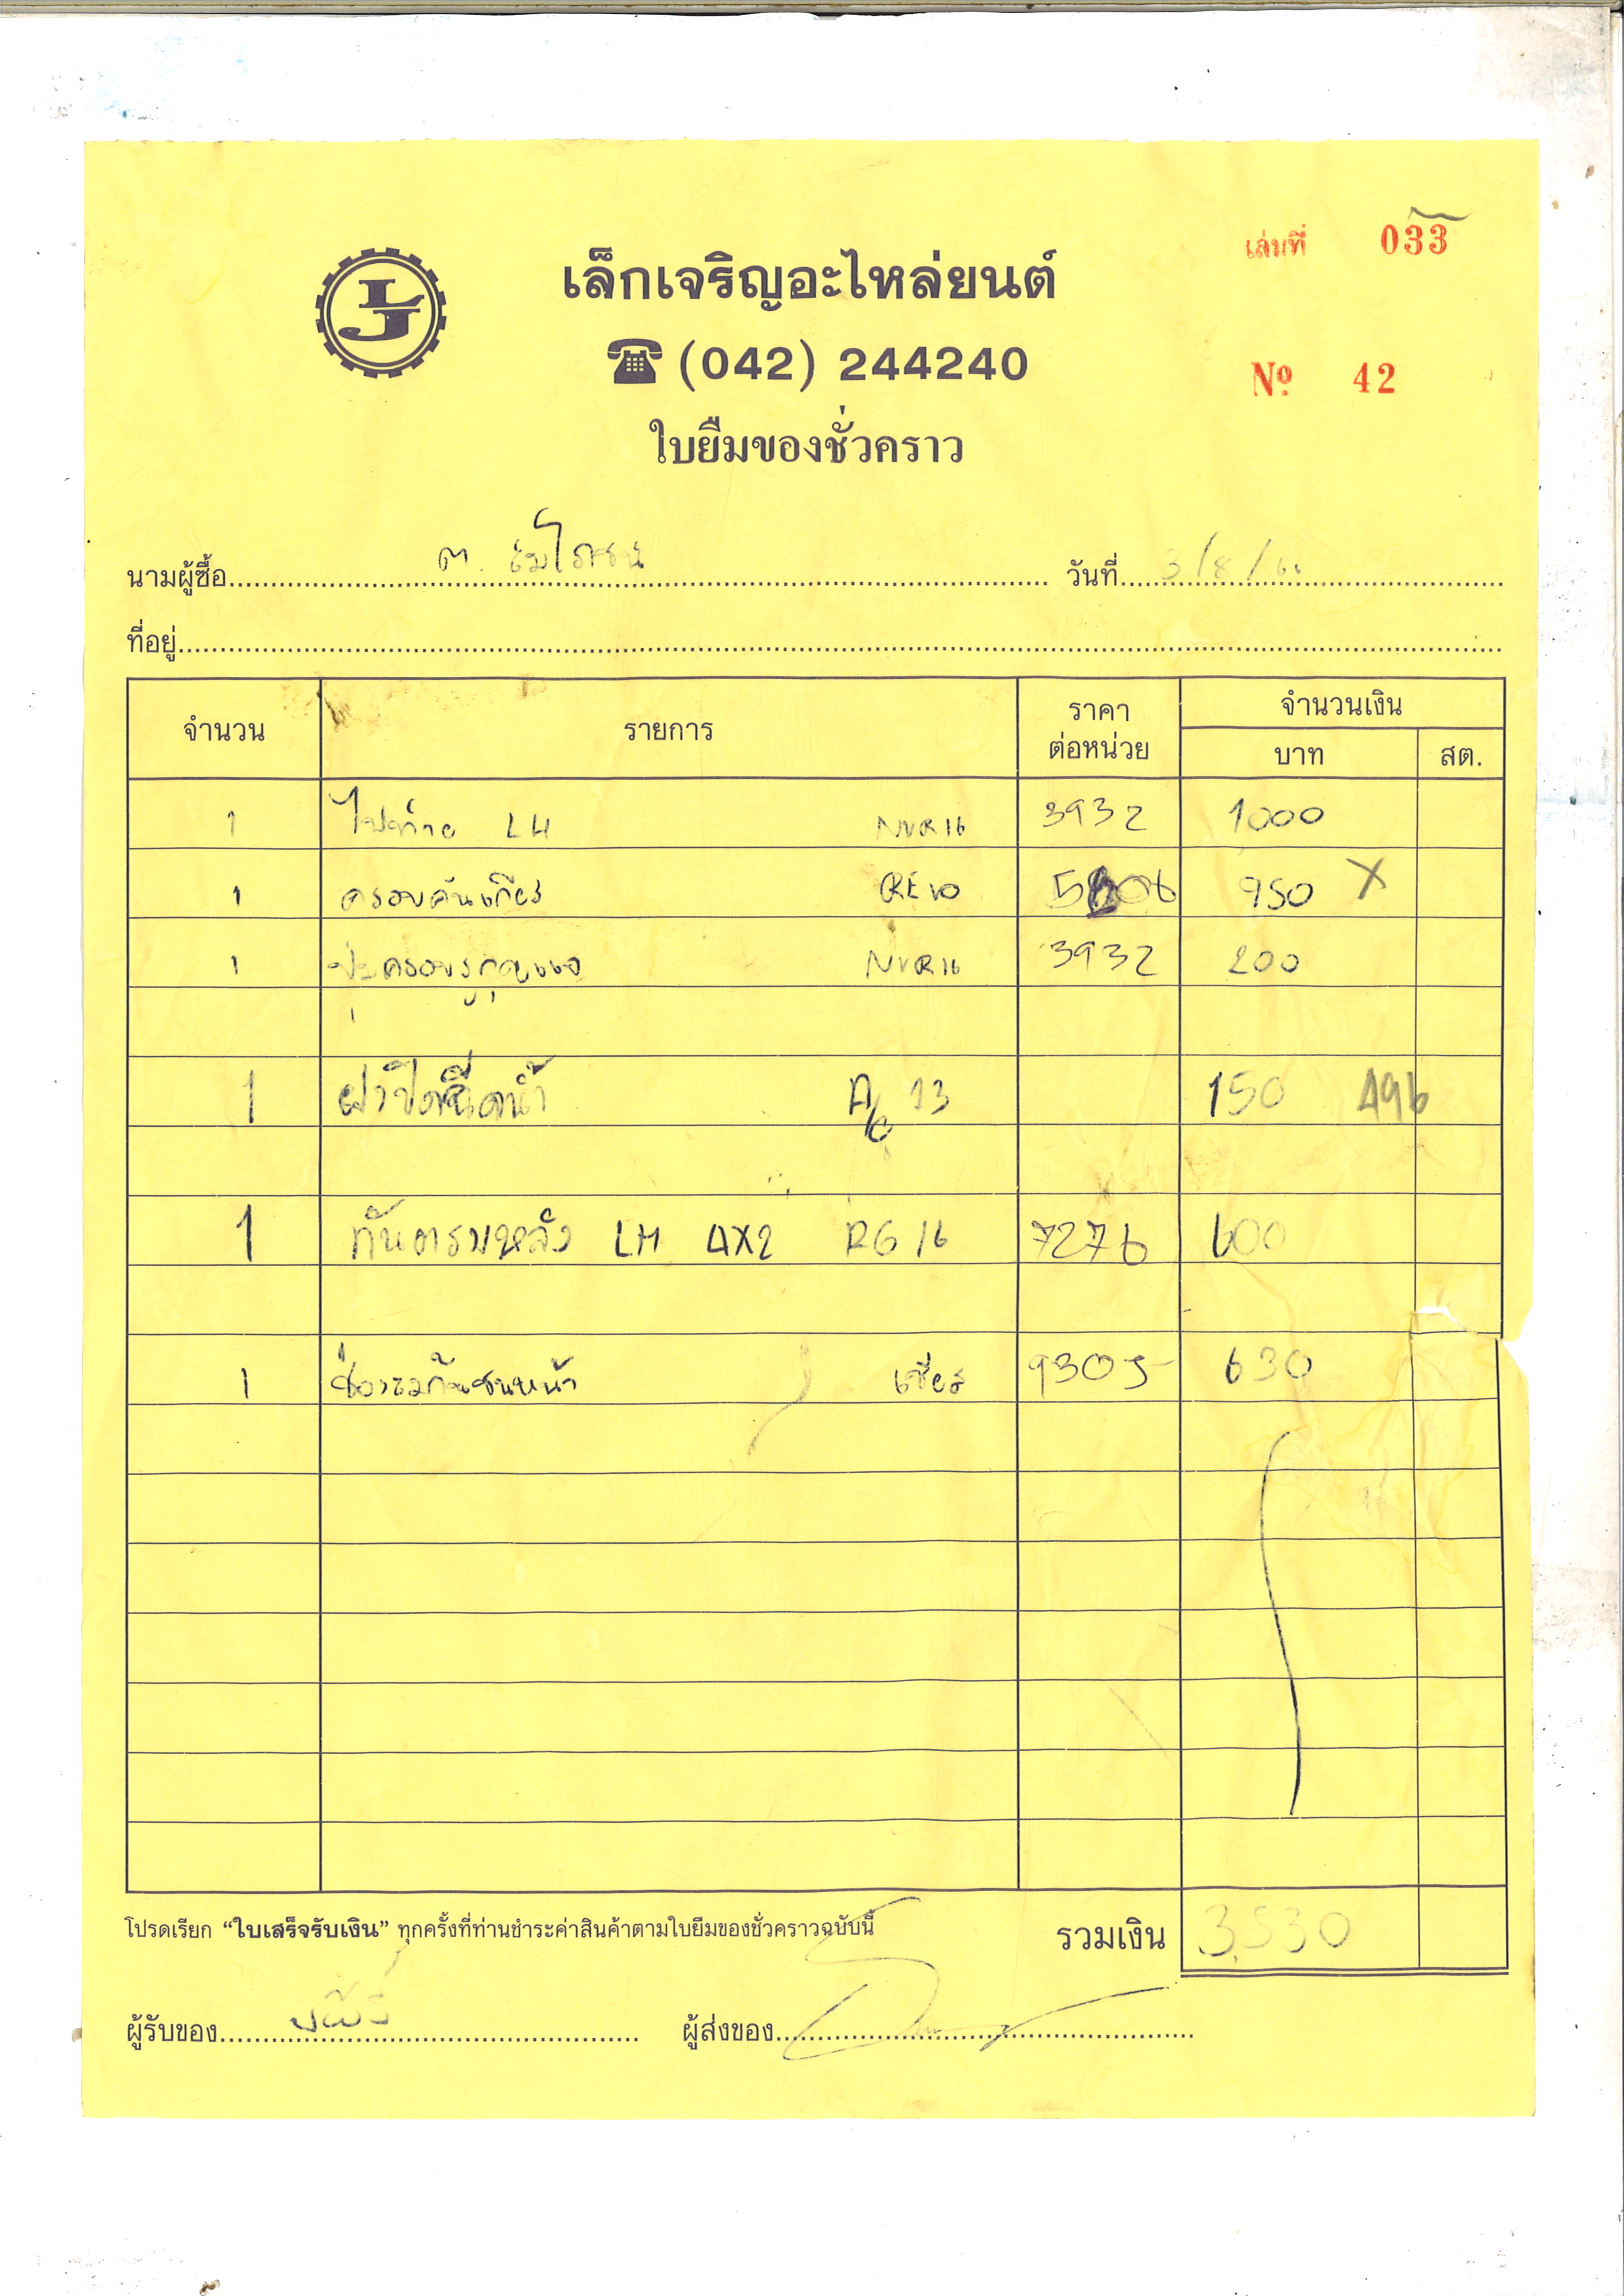 เล่มที่ 033
เล็กเจริญอะไหล่ยนต์
(042) 244240
Nº 42
ใบยืมของชั่วคราว
นามผู้ซื้อ วันที่ 3/8/66
ที่อยู่
จำนวน รายการ ราคาต่อหน่วย จำนวนเงิน บาท สต.
1 ไฟท้าย LH NVR16 3932 1000
1 ครอบคันเกียร์ REVO 950 X
1 ครอบรูกุญแจ NVR16 3932 200
1 ฝาปิดฉีดน้ำ 13 150 A96
1 หลัง LH 4X2 RG 16 7276 600
1 ช่องลมกันชนหน้า 9305 630
โปรดเรียก “ใบเสร็จรับเงิน” ทุกครั้งที่ท่านชำระค่าสินค้าตามใบยืมของชั่วคราวฉบับนี้ รวมเงิน 3,530
ผู้รับของ ผู้ส่งของ